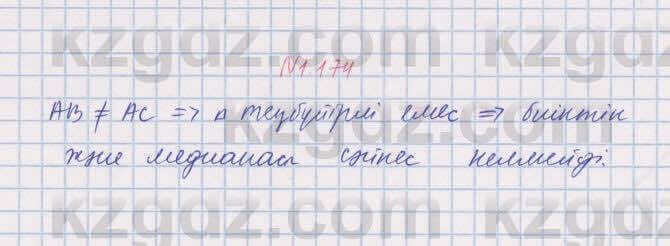 kzgdz.com kzgdz.com
N1.174
AB ≠ AC => △ теңбүйірлі емес => биіктік
және медианасы сәйкес келмейді.
kzgdz.com kzgdz.com